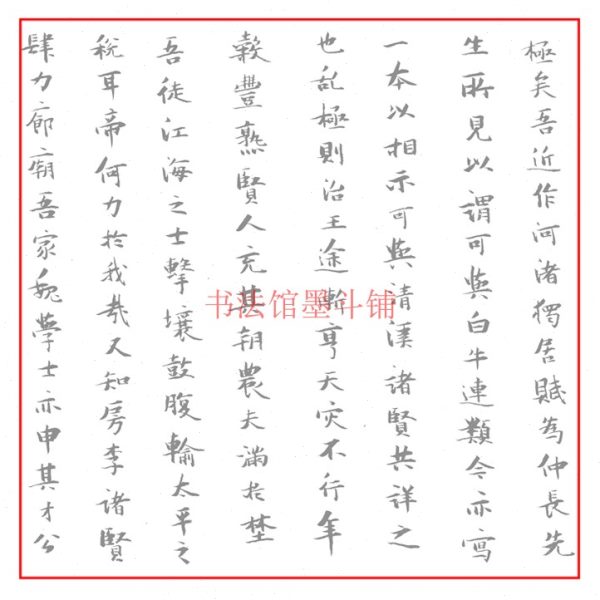 極矣吾近作河渚獨居賦為仲長先
生所見以謂可與白牛連類今亦寫
一本以相示可與清溪諸賢共詳之
也乱極則治王途漸亨天灾不行年
穀豐熟賢人充其朝農夫滿於埜
吾徒江海之士擊壤鼓腹輸太平之
稅耳帝何力於我哉又知房李諸賢
肆力廊廟吾家魏學士亦申其才公
书法馆墨斗铺